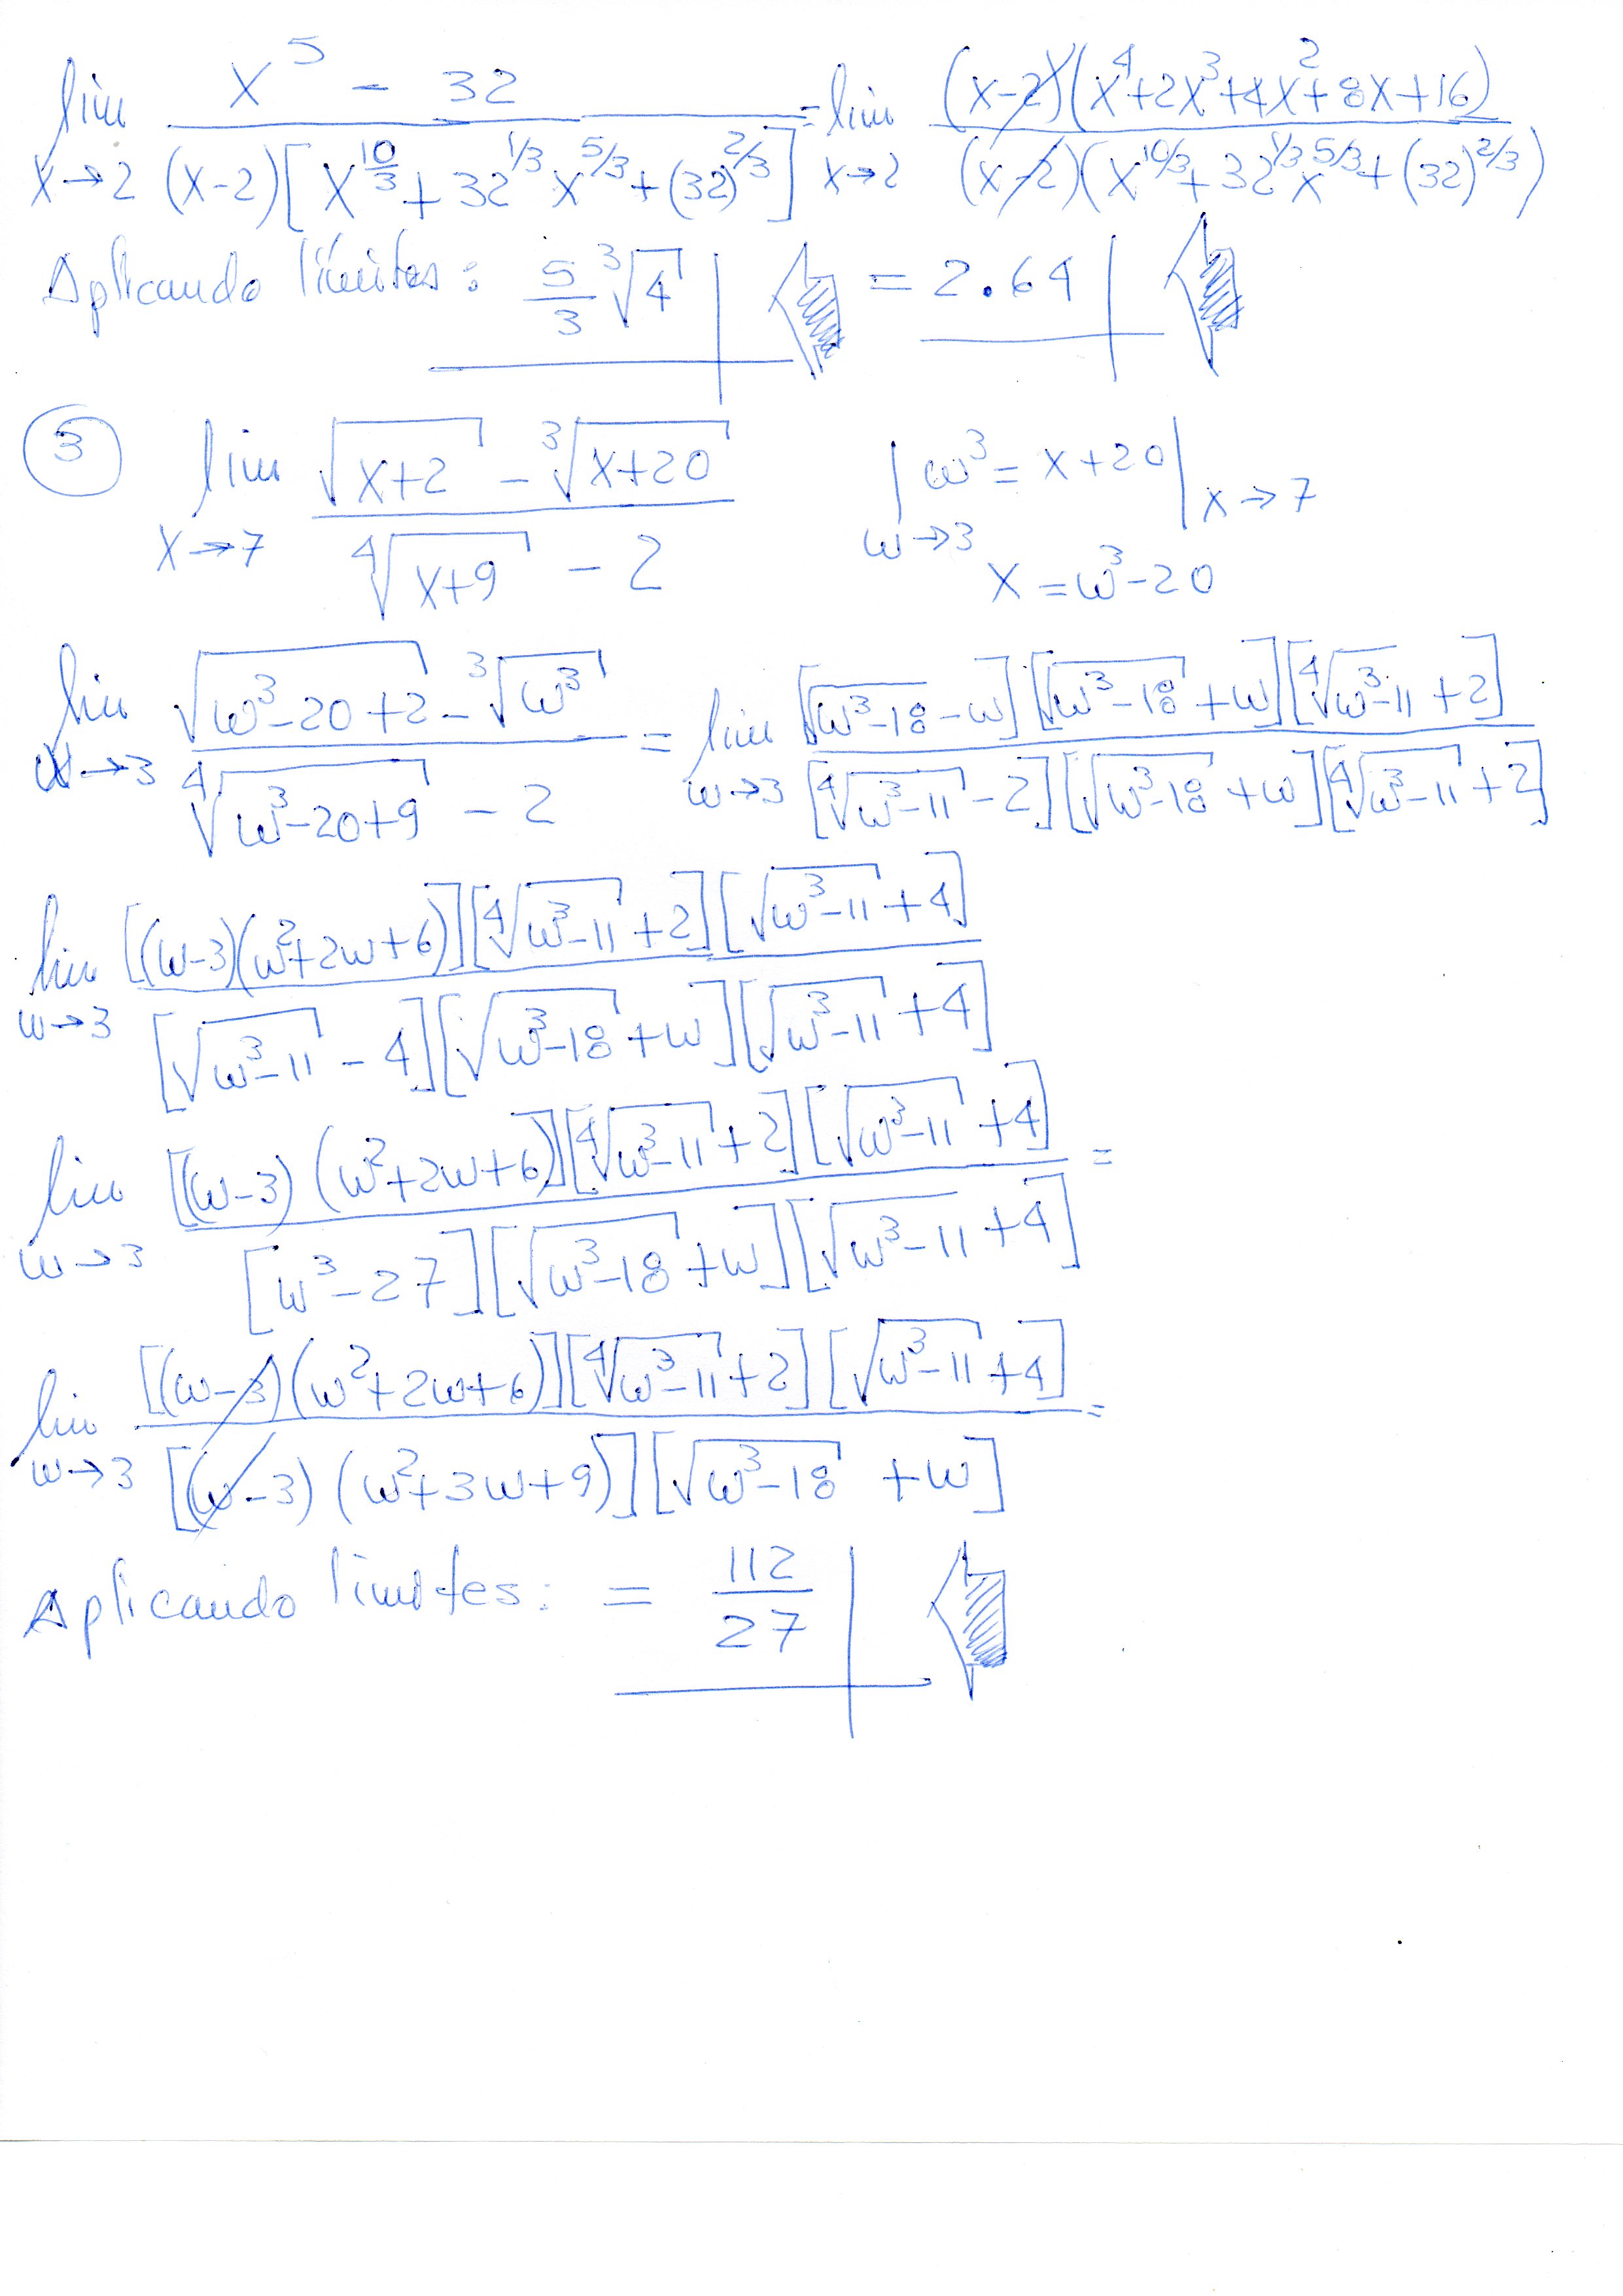 lim_{x→2} \frac{x^5 - 32}{(x-2)[x^{\frac{10}{3}} + 32^{1/3} x^{5/3} + (32)^{2/3}]} = lim_{x→2} \frac{(x-2)(x^4+2x^3+4x^2+8x+16)}{(x-2)(x^{10/3} + 32^{1/3} x^{5/3} + (32)^{2/3})}
Aplicando límites: \frac{5}{3} \sqrt[3]{4} = 2.64
③ lim_{x→7} \frac{\sqrt{x+2} - \sqrt[3]{x+20}}{\sqrt[4]{x+9} - 2} | w^3 = x+20 | x→7
w→3 x = w^3-20
lim_{w→3} \frac{\sqrt{w^3-20+2} - \sqrt[3]{w^3}}{\sqrt[4]{w^3-20+9} - 2} = lim_{w→3} \frac{[\sqrt{w^3-18} - w][\sqrt{w^3-18} + w][\sqrt[4]{w^3-11} + 2]}{[\sqrt[4]{w^3-11} - 2][\sqrt{w^3-18} + w][\sqrt[4]{w^3-11} + 2]}
lim_{w→3} \frac{[(w-3)(w^2+2w+6)][\sqrt[4]{w^3-11} + 2][\sqrt{w^3-11} + 4]}{[\sqrt{w^3-11} - 4][\sqrt{w^3-18} + w][\sqrt{w^3-11} + 4]}
lim_{w→3} \frac{[(w-3)(w^2+2w+6)][\sqrt[4]{w^3-11} + 2][\sqrt{w^3-11} + 4]}{[w^3-27][\sqrt{w^3-18} + w][\sqrt{w^3-11} + 4]} =
lim_{w→3} \frac{[(w-3)(w^2+2w+6)][\sqrt[4]{w^3-11} + 2][\sqrt{w^3-11} + 4]}{[(w-3)(w^2+3w+9)][\sqrt{w^3-18} + w]} =
Aplicando limites: = \frac{112}{27}